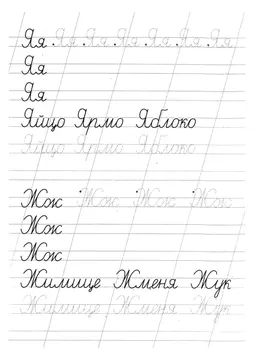 Яя Яя Яя Яя Яя Яя Яя
Яя
Яя
Яйцо Ярмо Яблоко
Яйцо Ярмо Яблоко
Жж Жж Жж Жж
Жж
Жж
Жилище Жменя Жук
Жилище Жменя Жук